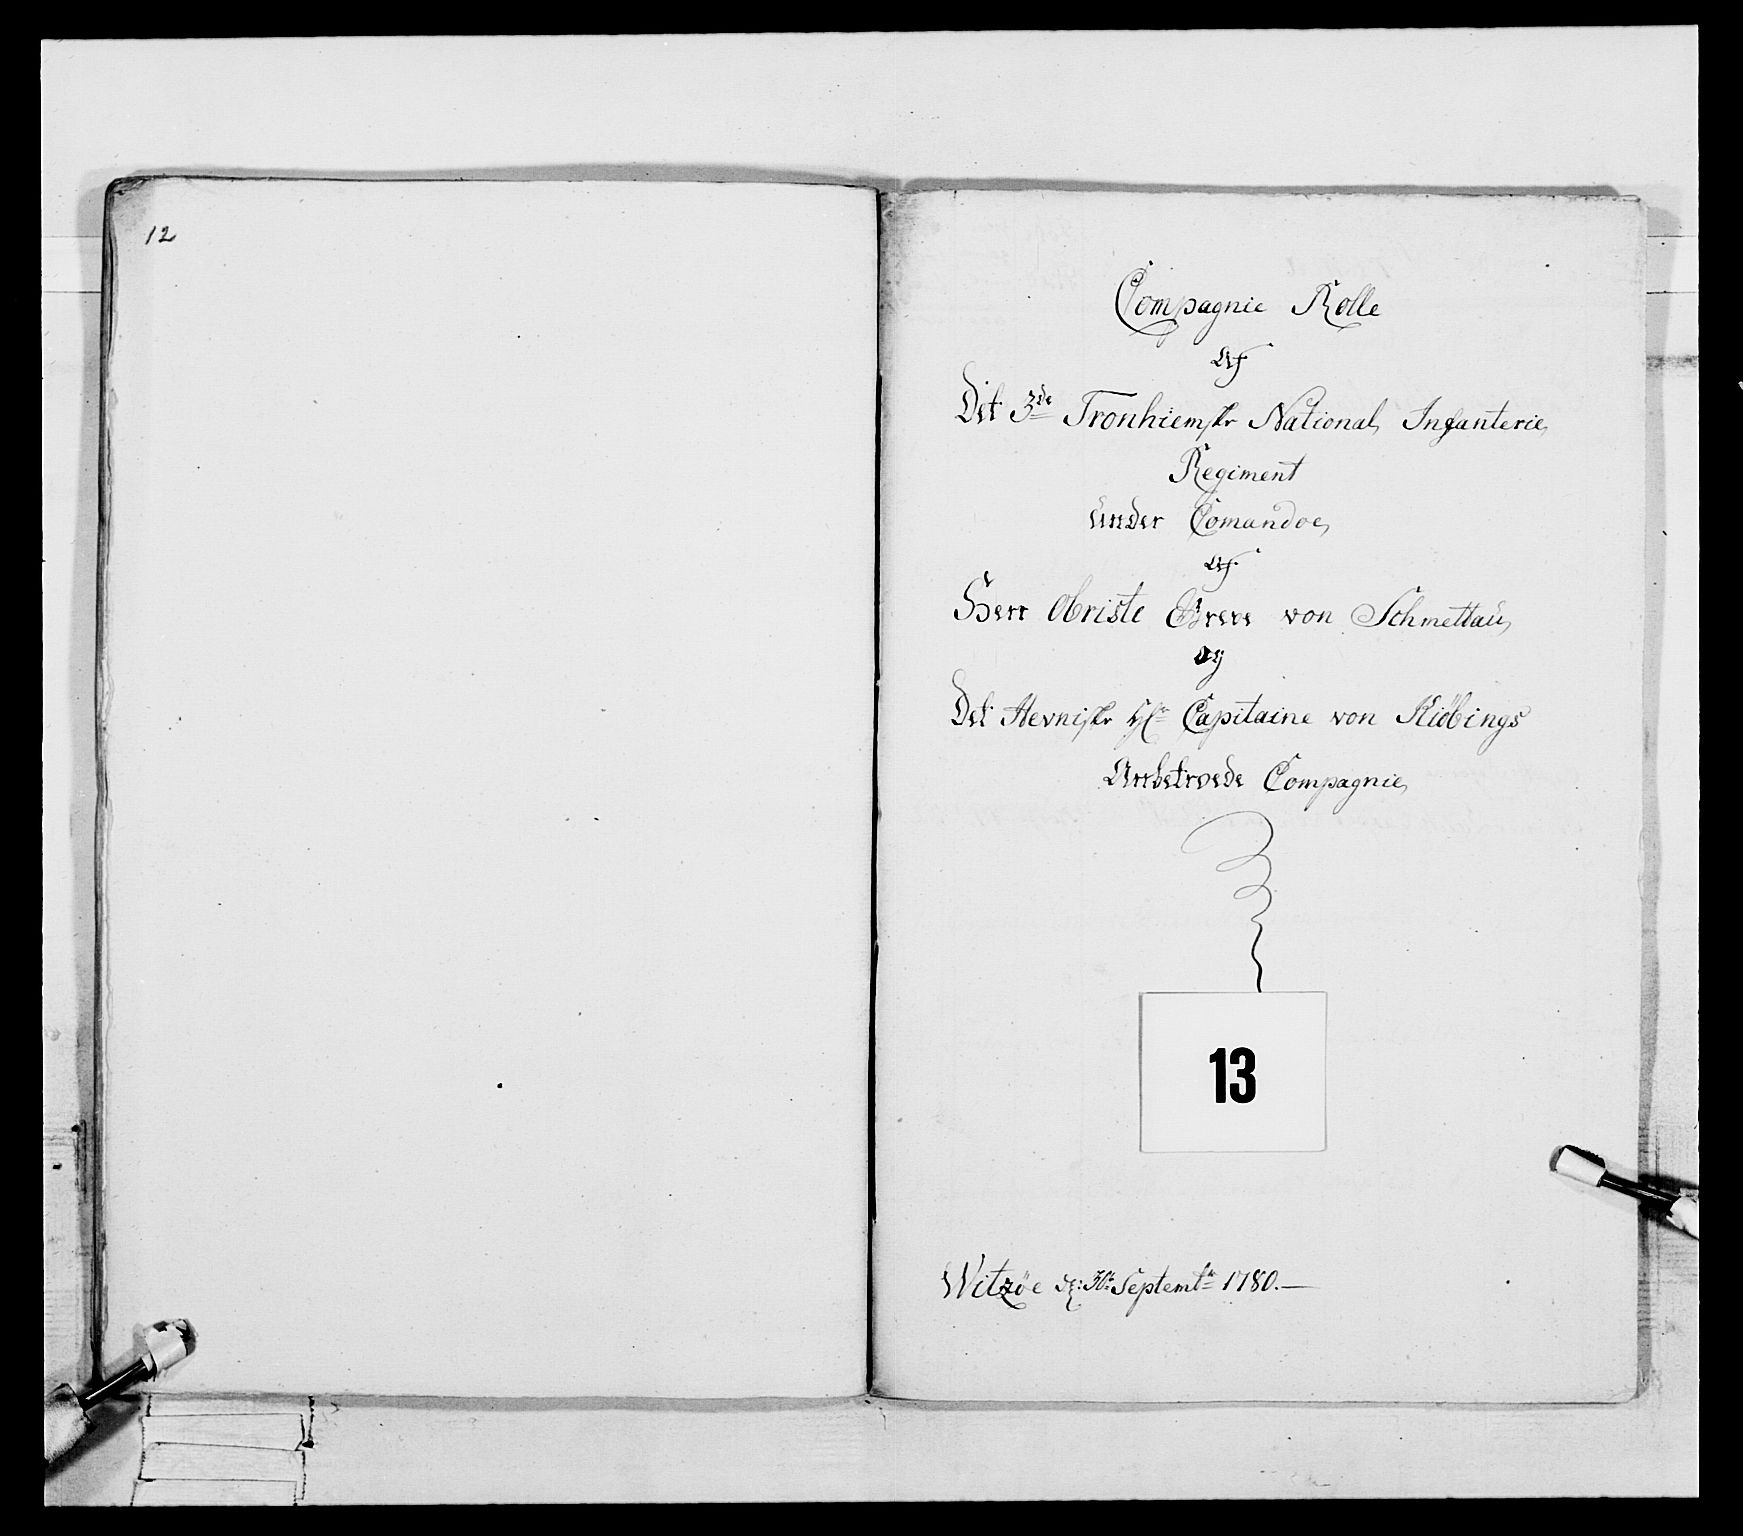 12
Compagnie Rolle
Af
Det 3de Tronhiemske National Infanterie
Regiment
under Comandoe
Af
Herr Obriste Greve von Schmettau
og
Det Hevniske Hr Capitaine von Kiöbings
Anbetroede Compagnie
13
Witzöe d: 30te Septembr 1780.